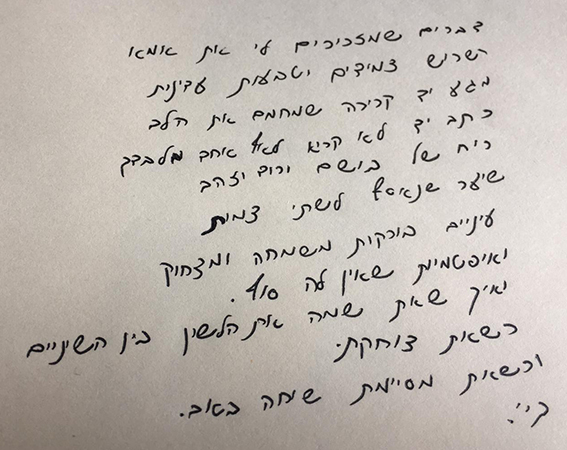 דברים שמזכירים לי את אמא
רשרוש צמידים וטבעות עדינות
מגע יד קרירה שמחמם את הלב
כתב יד לא קריא לאף אחד מלבדך
ריח של בושם ורוד וזהב
שיער שנאסף לשתי צמות
עיניים בורקות משמחה ומצחוק
ואופטימיות שאין לה סוף.
ואיך שאת שמה את הלשון בין השיניים
כשאת צוחקת.
וכשאת מסיימת שיחה בטוב.
ביי.